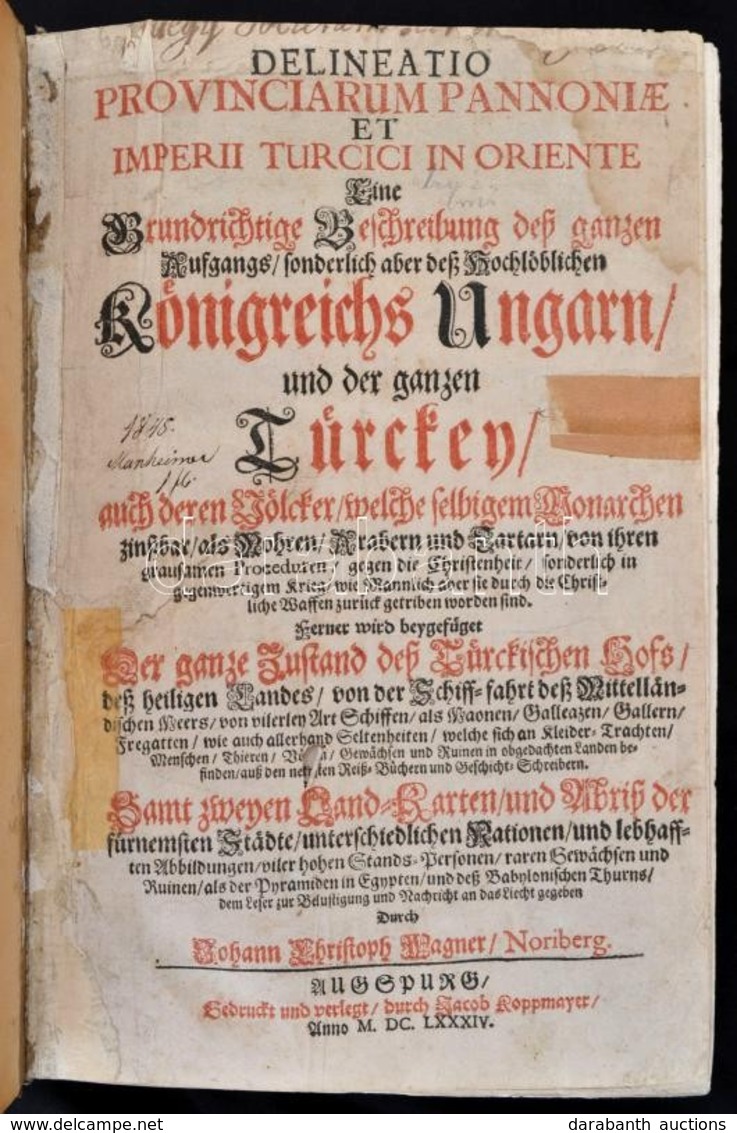 DELINEATIO
PROVINCIARUM PANNONIÆ
ET
IMPERII TURCICI IN ORIENTE
Eine
Grundrichtige Beschreibung deß ganzen
Aufgangs/ sonderlich aber deß Hochlöblichen
Königreichs Ungarn/
und der ganzen
Türckey/
1845.
Manheimer
auch deren Völcker/ welche selbigem Monarchen
zinßbar/ als Mohren/ Arabern und Tartarn/ von ihren
grausamen Proceduren/ gegen die Christenheit/ sonderlich in
gegenwertigem Krieg/ wie Mannlich aber sie durch die Christ-
liche Waffen zurück getriben worden sind.
Ferner wird beygefüget
Der ganze Zustand deß Türckischen Hofs/
deß heiligen Landes/ von der Schiff-fahrt deß Mittellän-
dischen Meers/ von vilerley Art Schiffen/ als Maonen/ Galleazen/ Gallern/
Fregatten/ wie auch allerhand Seltenheiten/ welche sich an Kleider-Trachten/
Menschen/ Thieren/ Gewächsen und Ruinen in obgedachten Landen be-
finden/ auß den Reiß-Büchern und Geschicht-Schreibern.
Samt zweyen Land-Karten/ und Abriß der
fürnemsten Städte/ unterschiedlichen Nationen/ und lebhaff-
ten Abbildungen/ viler hohen Stands-Personen/ raren Gewächsen und
Ruinen/ als der Pyramiden in Egypten/ und deß Babylonischen Thurns/
dem Leser zur Belustigung und Nachricht an das Liecht gegeben
Durch
Johann Christoph Wagner/ Noriberg.
AUGSPURG/
Gedruckt und verlegt/ durch Jacob Koppmayer/
Anno M. DC. LXXXIV.
darabanth auctions